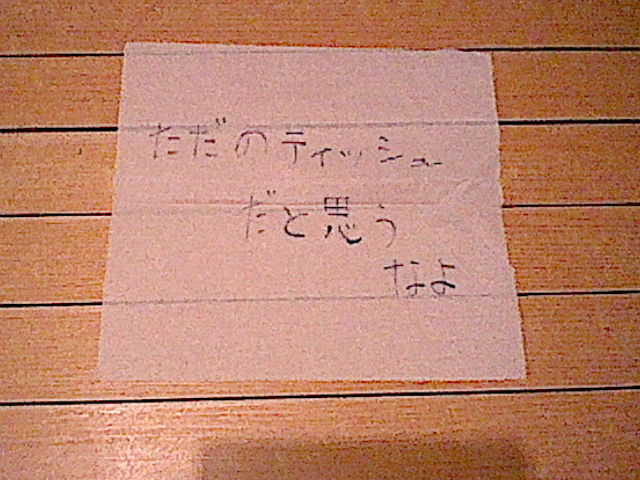 ただのティッシュ
だと思う
なよ